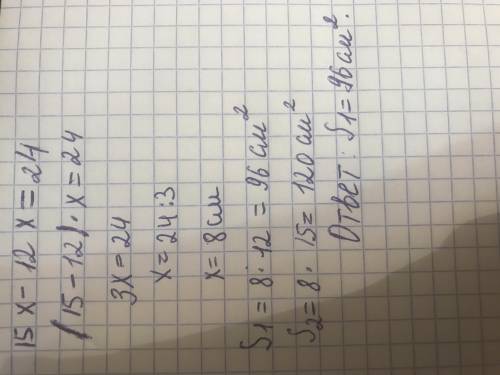 15x - 12x = 24
(15 - 12) · x = 24
3x = 24
x = 24 : 3
x = 8 см
S1 = 8 · 12 = 96 см²
S2 = 8 · 15 = 120 см²
Ответ: S1 = 96 см².